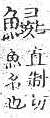 直制切
魚名也